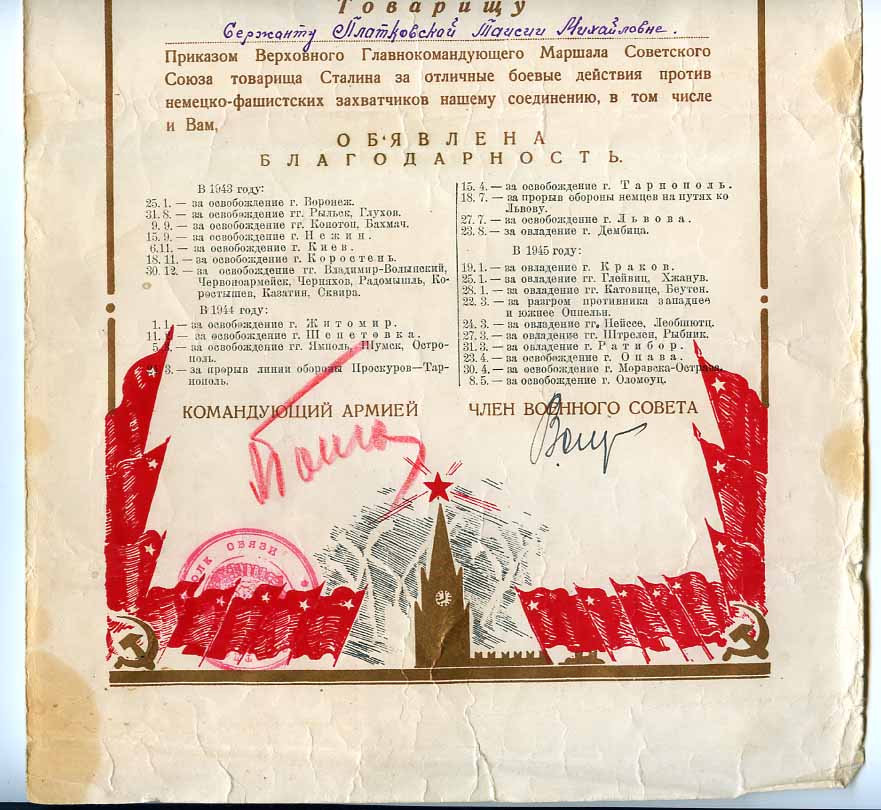 Товарищу
Сержанту Платковской Таисии Михайловне.
Приказом Верховного Главнокомандующего Маршала Советского
Союза товарища Сталина за отличные боевые действия против
немецко-фашистских захватчиков нашему соединению, в том числе
и Вам,
ОБ'ЯВЛЕНА
БЛАГОДАРНОСТЬ.
В 1943 году:
25. 1. — за освобождение г. Воронеж.
31. 8. — за освобождение гг. Рыльск, Глухов.
9. 9. — за освобождение гг. Конотоп, Бахмач.
15. 9. — за освобождение г. Нежин.
6.11. — за освобождение г. Киев.
18. 11. — за освобождение г. Коростень.
30. 12. — за освобождение гг. Владимир-Волынский,
Червоноармейск, Черняхов, Радомышль, Ко-
ростышев, Казатин, Сквира.
В 1944 году:
1. 1. — за освобождение г. Житомир.
11. — за освобождение г. Шепетовка.
5. — за освобождение гг. Ямполь, Шумск, Остро-
поль.
3. — за прорыв линии обороны Проскуров—Тар-
нополь.
15. 4. — за освобождение г. Тарнополь.
18. 7. — за прорыв обороны немцев на путях ко
Львову.
27. 7. — за освобождение г. Львова.
23. 8. — за овладение г. Дембица.
В 1945 году:
19. 1. — за овладение г. Краков.
25. 1. — за овладение гг. Глейвиц, Хжанув.
28. 1. — за овладение гг. Катовице, Беутен.
22. 3. — за разгром противника западнее
и южнее Оппельн.
24. 3. — за овладение гг. Нейссе, Леобшютц.
27. 3. — за овладение гг. Штрелен, Рыбник.
31. 3. — за овладение г. Ратибор.
23. 4. — за освобождение г. Опава.
30. 4. — за освобождение г. Моравска-Острава.
8. 5. — за освобождение г. Оломоуц.
КОМАНДУЮЩИЙ АРМИЕЙ
ЧЛЕН ВОЕННОГО СОВЕТА
связи